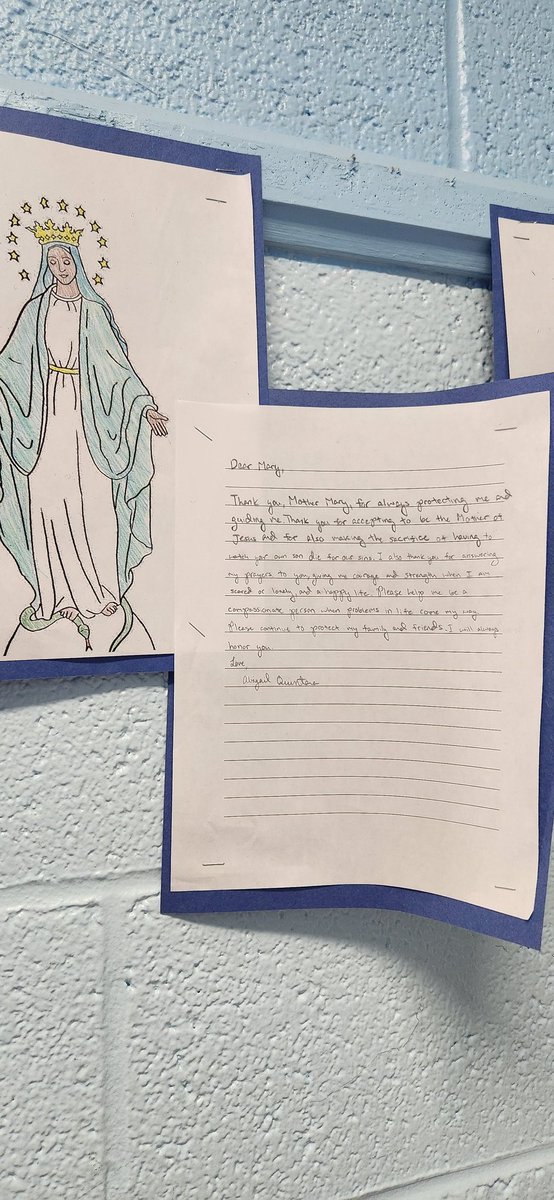 Dear Mary,
Thank you, Mother Mary, for always protecting me and
guiding me. Thank you for accepting to be the Mother of
Jesus and for also making the sacrifice of having to
watch your own son die for our sins. I also thank you for answering
my prayers to you, giving me courage and strength when I am
scared or lonely, and a happy life. Please help me be a
compassionate person when problems in life come my way.
Please continue to protect my family and friends. I will always
honor you.
Love,
Abigail Quintana